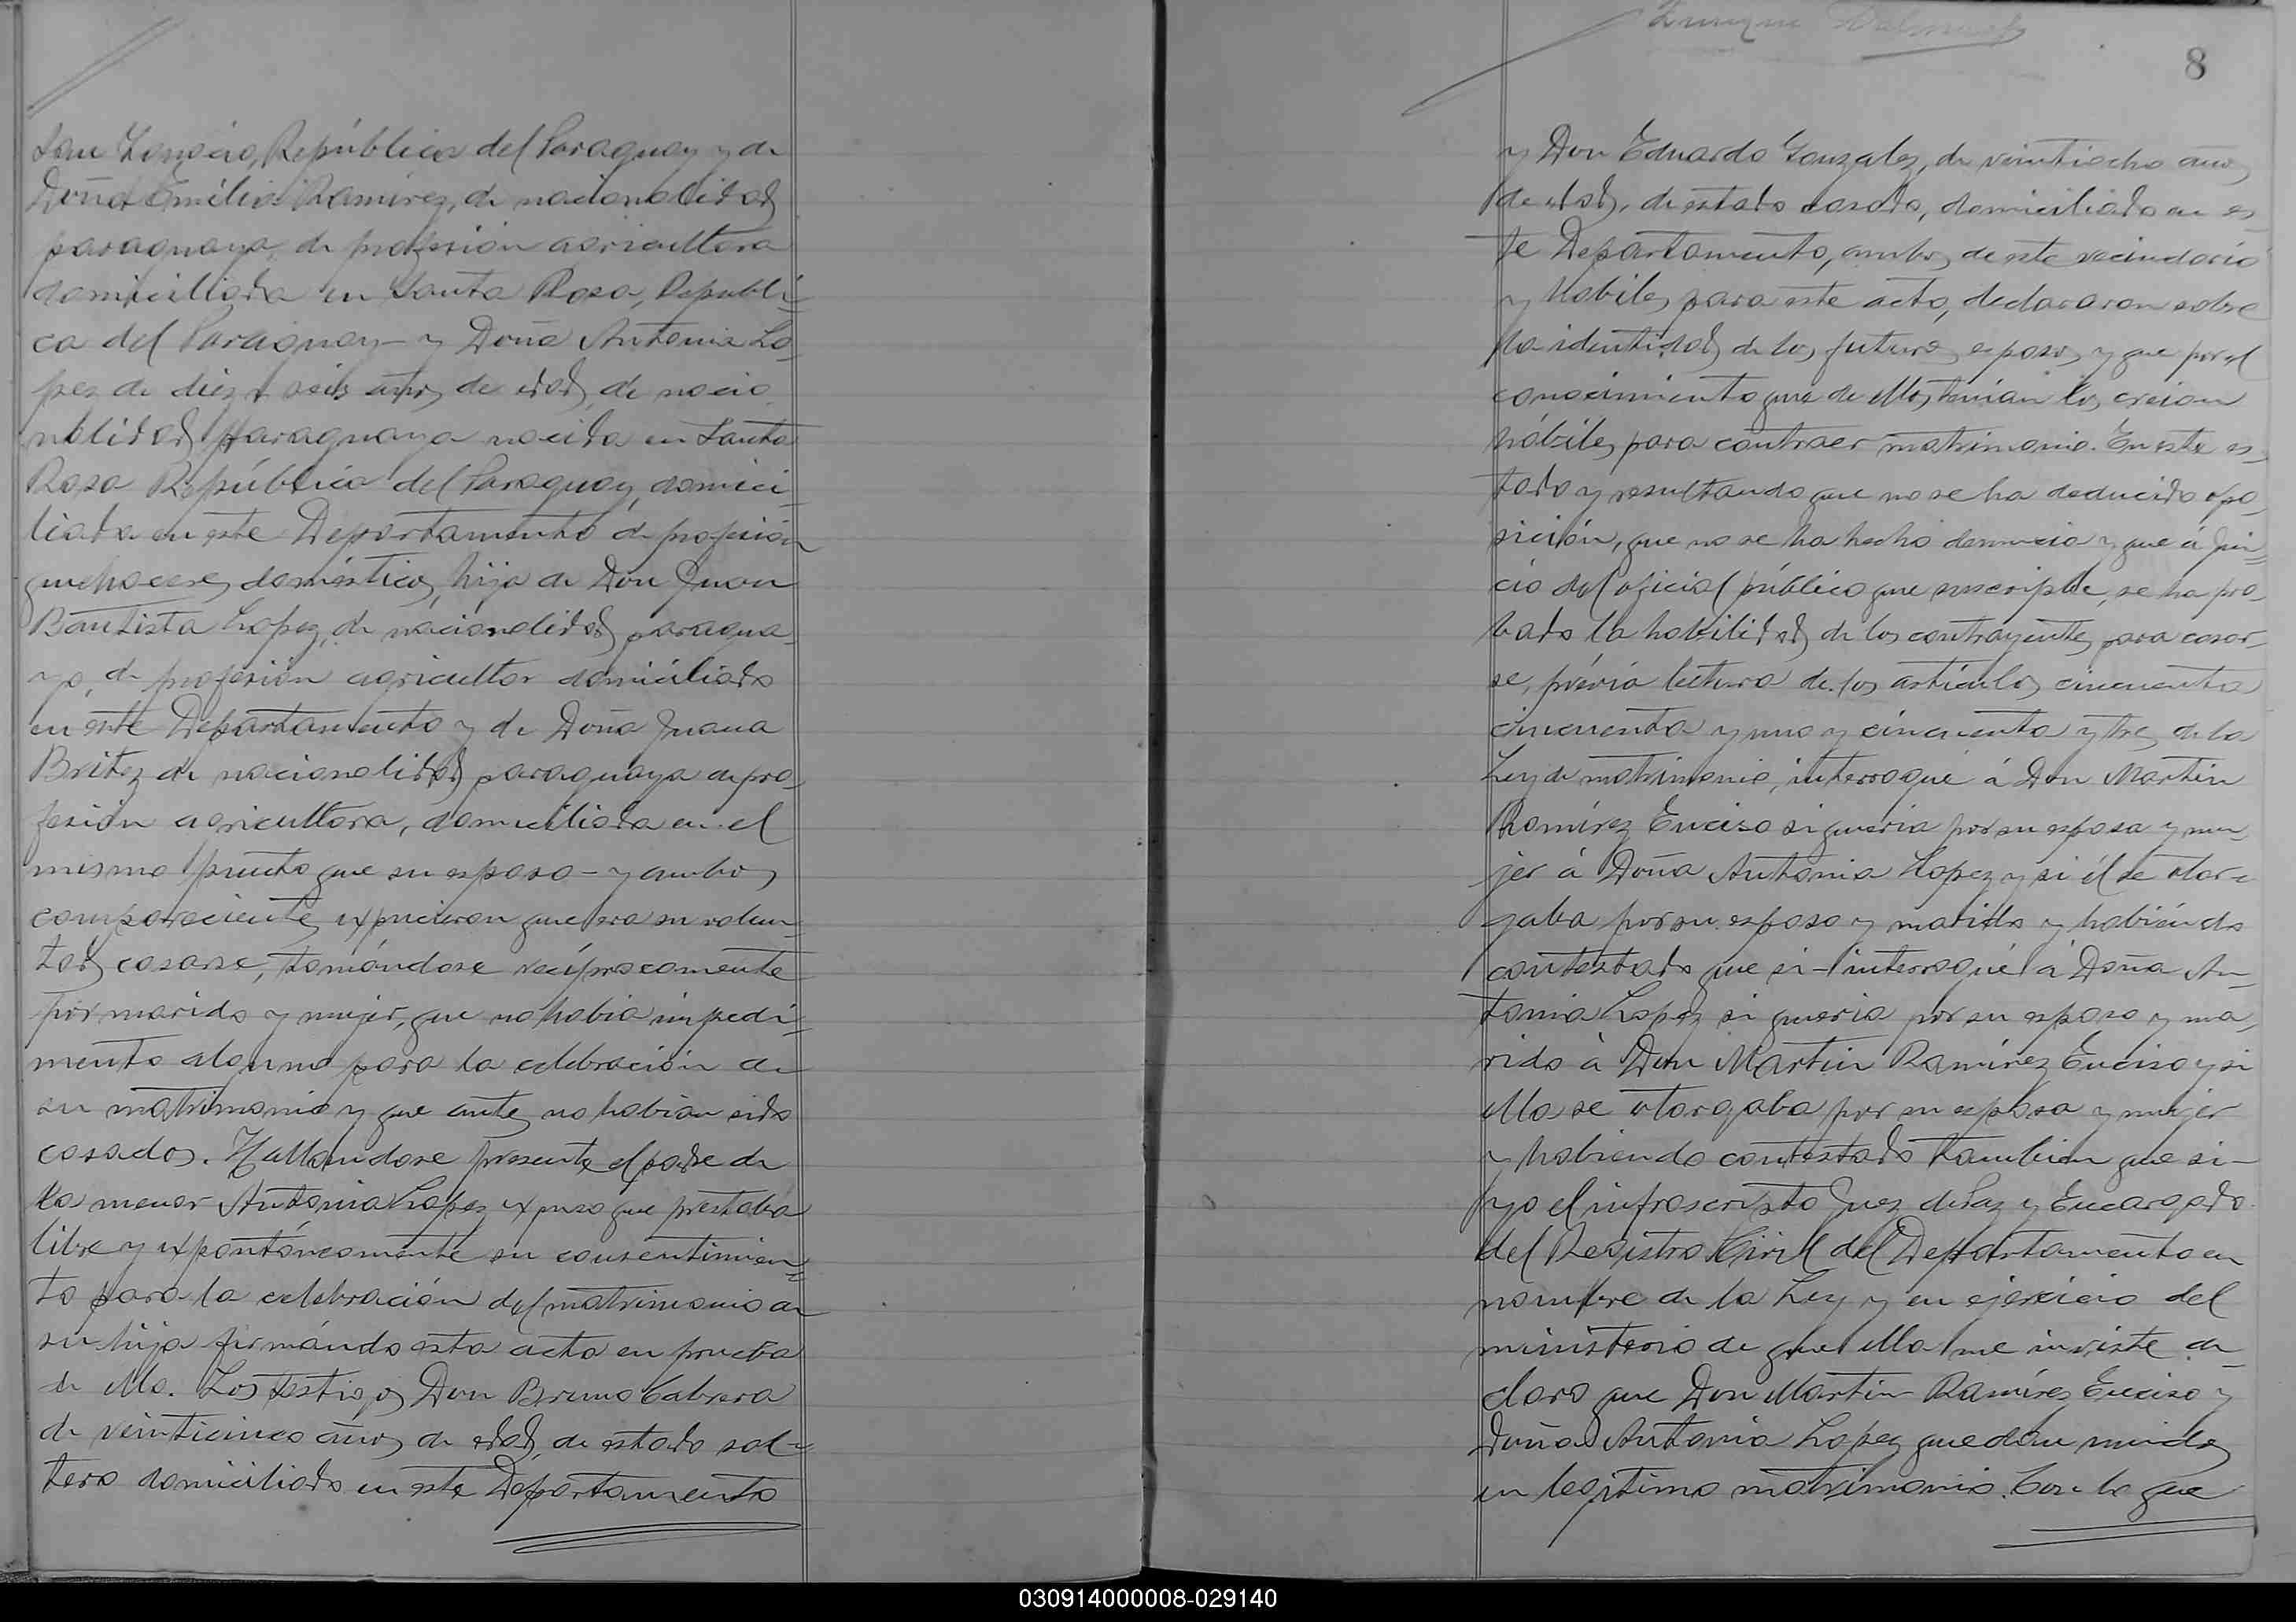 San Ignacio, República del Paraguay y de
Doña Emilia Ramírez, de nacionalidad
paraguaya, de profesión agricultora
domiciliada en Santa Rosa, Repúbli-
ca del Paraguay - y Doña Antonia Lo-
pez de diez y seis años de edad, de nacio-
nalidad Paraguaya nacida en Santa
Rosa República del Paraguay, domici-
liada en este Departamento de profesión
quehaceres domésticos, hija de Don Juan
Bautista Lopez, de nacionalidad paragua-
ya, de profesión agricultor domiciliado
en este Departamento y de Doña Juana
Britez de nacionalidad paraguaya de pro-
fesión agricultora, domiciliada en el
mismo punto que su esposo - y ambos
comparecientes expusieron que era su volun-
tad casarse, tomándose recíprocamente
por marido y mujer, que no habia impedi-
mento alguno para la celebración de
su matrimonio y que antes no habian sido
casados. Hallandose presente el padre de
la menor Antonia Lopez expuso que prestaba
libre y expontáneamente su consentimien-
to para la celebración del matrimonio de
su hija firmándo esta acta en prueba
de ello. Los testigos Don Bruno Cabrera
de veinticinco años de edad, de estado sol-
tero domiciliado en este Departamento
8
y Don Eduardo Gonzalez, de veintiocho años
de edad, de estado casado, domiciliado en es-
te Departamento, ambos de este vecindario
y habiles para este acto, declararon sobre
la identidad de los futuros esposos y que por el
conocimiento que de ellos tenían los creian
hábiles para contraer matrimonio. En este es-
tado y resultando que no se ha deducido opo-
sición, que no se ha hecho denuncia y que á jui-
cio del oficial público que suscripbe, se ha pro-
bado la habilidad de los contrayentes para casar-
se, prévia lectura de los artículos cincuenta
cincuenta y uno y cincuenta y tres de la
Ley de matrimonio, interrogué á Don Martin
Ramírez Enciso si queria por su esposa y mu-
jer á Doña Antonia Lopez y si él se otor-
gaba por su esposo y marido y habiéndo
contestado que si - interrogué á Doña An-
tonia Lopez si queria por su esposo y ma-
rido á Don Martin Ramírez Enciso y si
ella se otorgaba por su esposa y mujer
y habiendo contestado tambien que si -
yo el infrascripto Juez de Paz y Encargado
del Registro Civil del Departamento en
nombre de la Ley y en ejercicio del
ministerio de que ella me inviste de-
claro que Don Martin Ramírez Enciso y
Doña Antonia Lopez quedan unidos
en legítimo matrimonio. Con lo que
030914000008-029140